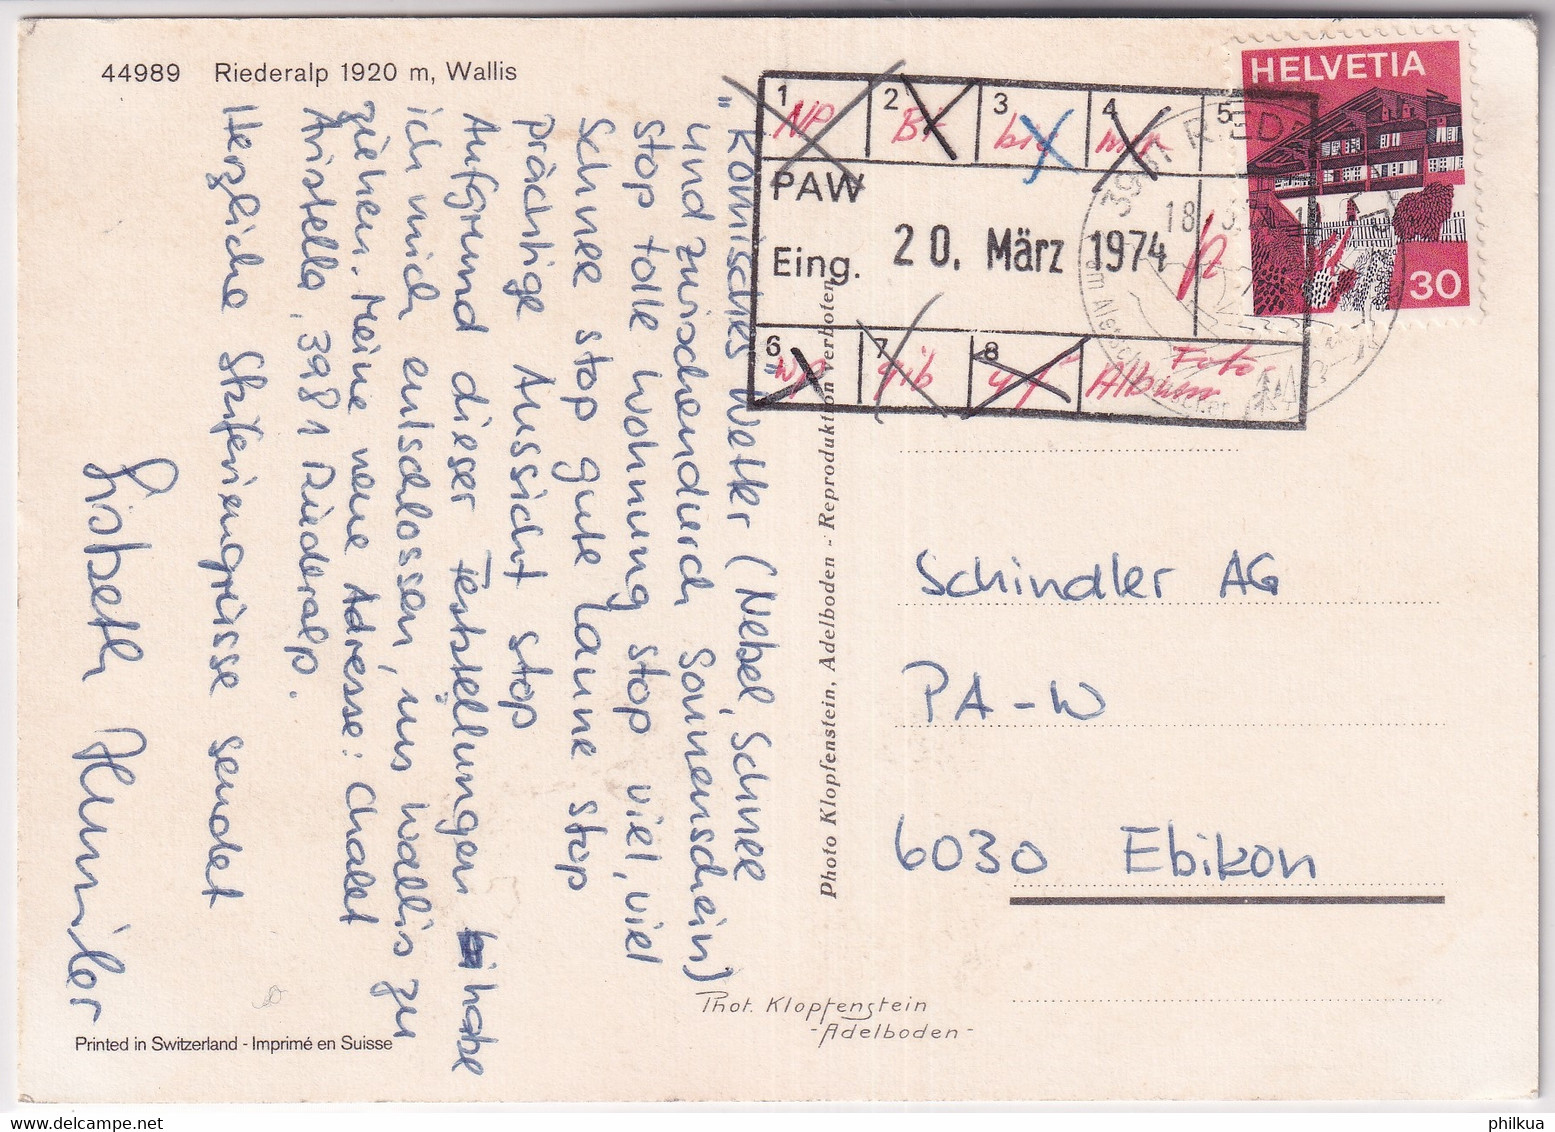 44989 Riederalp 1920 m, Wallis
"Komisches" Wetter (Nebel, Schnee
und zwischendurch Sonnenschein)
stop tolle Wohnung stop viel, viel
Schnee stop gute Laune stop
prächtige Aussicht stop
Aufgrund dieser Feststellungen habe
ich mich entschlossen, ins Wallis zu
ziehen. Meine neue Adresse: Chalet
Aristella, 3981 Riederalp.
Herzliche Skiferiengrüsse sendet
Lisbeth
Printed in Switzerland - Imprimé en Suisse
Photo Klopfenstein, Adelboden - Reproduktion verboten
Phot. Klopfenstein
- Adelboden -
HELVETIA
30
1 2 3 4 5
NP Bt
PAW
Eing. 20. März 1974
6 7 8
NP gib Foto-
Album
3981 RIED
18
Schindler AG
PA-W
6030 Ebikon